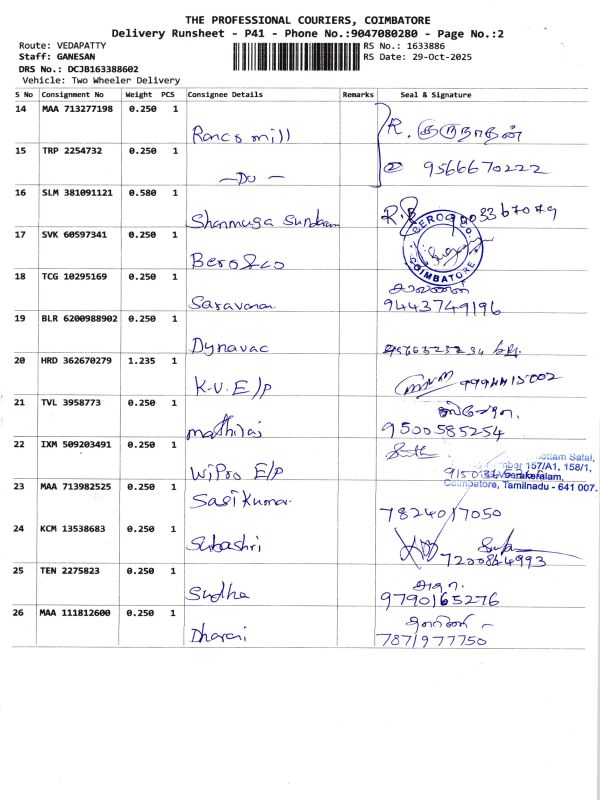 THE PROFESSIONAL COURIERS, COIMBATORE
Delivery Runsheet - P41 - Phone No.:9047080280 - Page No.:2
Route: VEDAPATTY
RS No.: 1633886
Staff: GANESAN
RS Date: 29-Oct-2025
DRS No.: DCJB163388602
Vehicle: Two Wheeler Delivery
S No Consignment No Weight PCS Consignee Details Remarks Seal & Signature
14 MAA 713277198 0.250 1 Roncs mill R. குருநாதன்
15 TRP 2254732 0.250 1 -Do- 9566670222
16 SLM 381091121 0.580 1 Shanmuga Sundaram
17 SVK 60597341 0.250 1 Bero&co COIMBATORE
18 TCG 10295169 0.250 1 Saravanan 9443749196
19 BLR 6200988902 0.250 1 Dynavac
20 HRD 362670279 1.235 1 K.V. E/P
21 TVL 3958773 0.250 1 mathilai 9500585254
22 IXM 509203491 0.250 1 Wipro E/P
ottam Salai,
157/A1, 158/1,
Veerakeralam,
Coimbatore, Tamilnadu - 641 007.
23 MAA 713982525 0.250 1 Sasikumar 7824017050
24 KCM 13538683 0.250 1 Subashri 7200864993
25 TEN 2275823 0.250 1 Sudha 9790165276
26 MAA 111812600 0.250 1 Dharani 7871977750